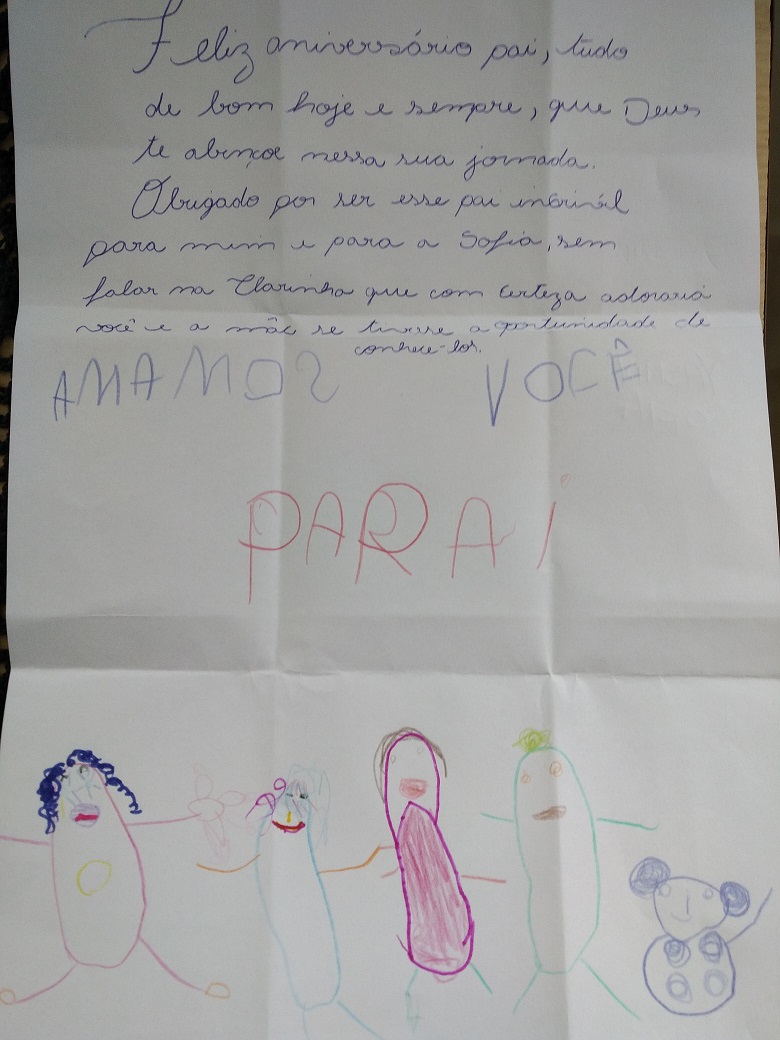 Feliz aniversário pai, tudo
de bom hoje e sempre, que Deus
te abençoe nessa sua jornada.
Obrigado por ser esse pai incrível
para mim e para a Sofia, sem
falar na Clarinha que com certeza adoraria
você e a mãe se tivesse a oportunidade de
conhece-los.
AMAMOS VOCÊ
PARAi